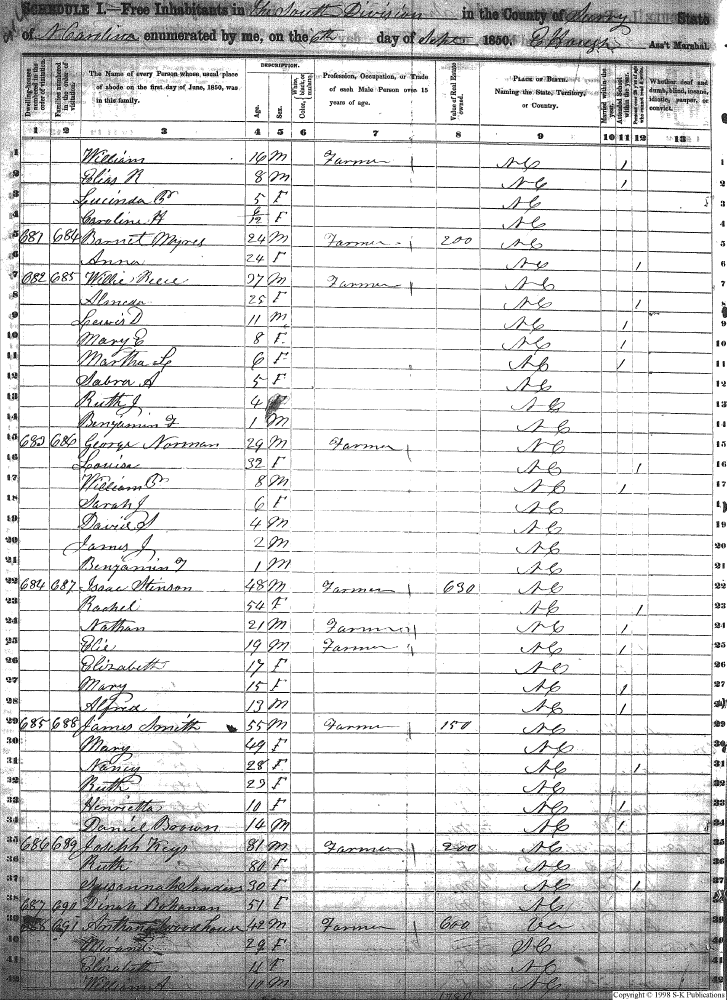 SCHEDULE I.—Free Inhabitants in The South Division in the County of Surry State
of N Carolina enumerated by me, on the 6th day of Sept 1850. Ass't Marshal.
DESCRIPTION.
Dwelling-houses numbered in the order of visitation.
Families numbered in the order of visitation.
The Name of every Person whose usual place of abode on the first day of June, 1850, was in this family.
Age.
Sex.
Color, White, black, or mulatto.
Profession, Occupation, or Trade of each Male Person over 15 years of age.
Value of Real Estate owned.
PLACE OF BIRTH. Naming the State, Territory, or Country.
Married within the year.
Attended School within the year.
Whether deaf and dumb, blind, insane, idiotic, pauper, or convict.
1 2 3 4 5 6 7 8 9 10 11 12 13
1 William 16 M Farmer NC 1
2 Elias R 8 M NC 1
3 Lucinda C 5 F NC
4 Caroline H 6/12 F NC
5 681 684 Barnet Mayres 24 M Farmer 200 NC
6 Anna 24 F NC 1
7 682 685 Willie Reece 27 M Farmer NC
8 Almeda 25 F NC 1
9 Lewis D 11 M NC 1
10 Mary E 8 F NC 1
11 Martha L 6 F NC 1
12 Sabra A 5 F NC
13 Ruth J 4 NC
14 Benjamin F 1 M NC
15 683 686 George Norman 29 M Farmer NC
16 Louisa 32 F NC 1
17 William C 8 M NC 1
18 Sarah J 6 F NC
19 David S 4 M NC
20 James J 2 M NC
21 Benjamin F 1 M NC
22 684 687 Isaac Stinson 48 M Farmer 630 NC
23 Rachel 54 F NC 1
24 Nathan 21 M Farmer NC 1
25 Elie 19 M Farmer NC 1
26 Elizabeth 17 F NC
27 Mary 15 F NC 1
28 Alfred 13 M NC 1
29 685 688 James Smith 55 M Farmer 150 NC
30 Mary 49 F NC
31 Nancy 28 F NC 1
32 Ruth 23 F NC
33 Henrietta 10 F NC 1
34 Daniel Brown 14 M NC 1
35 686 689 Joseph Keys 81 M Farmer 200 NC
36 Ruth 80 F NC
37 Susannah Sanders 30 F NC 1
38 687 690 Dinah Bohanan 51 F NC
39 688 691 Anthony Woodhouse 42 M Farmer 600 Va
40 29 F NC
41 Elizabeth 11 F NC
42 William A 10 M NC
Copyright © 1998 S-K Publications